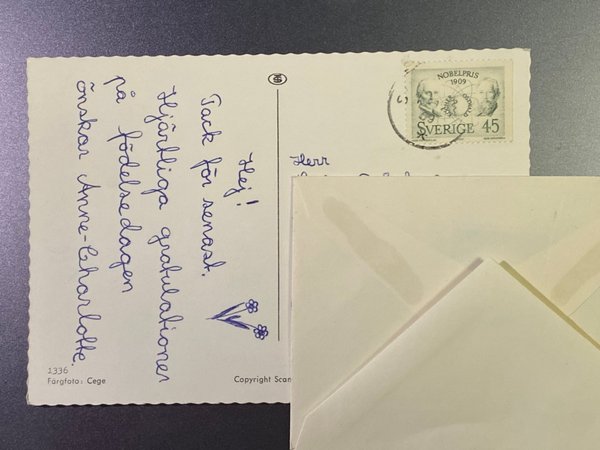 Hej!
Tack för senast.
Hjärtliga gratulationer
på födelsedagen
önskar Anne-Charlotte.
NOBELPRIS
1909
SVERIGE 45
Herr
1336
Färgfoto: Cege
Copyright Scan